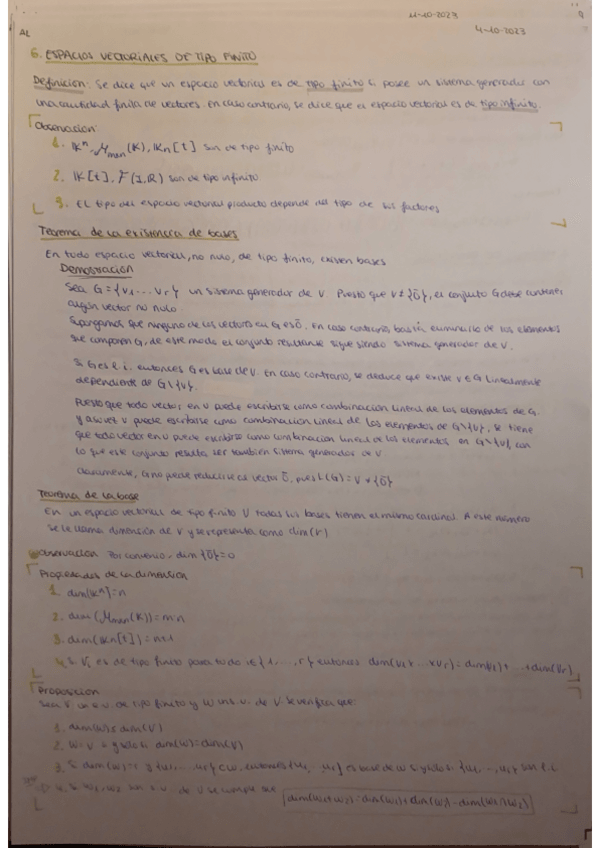 11-10-2023
4-10-2023
AL
6. ESPACIOS VECTORIALES DE TIPO FINITO
Definición: Se dice que un espacio vectorial es de tipo finito si posee un sistema generador con
una cantidad finita de vectores. En caso contrario, se dice que el espacio vectorial es de tipo infinito.
Observación:
1. 𝕂ⁿ, Mmxn(𝕂), 𝕂n[t] son de tipo finito
2. 𝕂[t], F(I,ℝ) son de tipo infinito
3. El tipo del espacio vectorial producto depende del tipo de sus factores
Teorema de la existencia de bases
En todo espacio vectorial, no nulo, de tipo finito, existen bases
Demostración
Sea G = {v₁ ... vr} un sistema generador de V. Puesto que V ≠ {ō}, el conjunto G debe contener
algún vector no nulo.
Supongamos que ninguno de los vectores en G es ō, en caso contrario basta eliminarlo de los elementos
que componen G, de este modo el conjunto resultante sigue siendo sistema generador de V.
Si G es l.i. entonces G es base de V. En caso contrario, se deduce que existe v ∈ G linealmente
dependiente de G\{v}.
Puesto que todo vector en V puede escribirse como combinación lineal de los elementos de G.
y a su vez v puede escribirse como combinación lineal de los elementos de G\{v}, se tiene
que todo vector en V puede escribirse como combinación lineal de los elementos en G\{v}, con
lo que este conjunto resulta ser también sistema generador de V
Claramente, G no puede reducirse al vector ō, pues L(G) = V ≠ {ō}
Teorema de la base
En un espacio vectorial de tipo finito V todas sus bases tienen el mismo cardinal. A este número
se le llama dimensión de V y se representa como dim(V)
Observación Por convenio, dim{ō}=0
Propiedades de la dimensión
1. dim(𝕂ⁿ)=n
2. dim(Mmxn(𝕂))=m·n
3. dim(𝕂n[t])=n+1
4. Si Vi es de tipo finito para todo i∈{1, ..., r} entonces dim(V₁x ... xVr)=dim(V₁)+ ... +dim(Vr)
Proposición
Sea V un e.v. de tipo finito y W un s.v. de V. Se verifica que:
1. dim(W)≤dim(V)
2. W=V si y solo si dim(W)=dim(V)
3. Si dim(W)=r y {u₁, ..., ur} ⊂ W, entonces {u₁, ..., ur} es base de W si y solo si {u₁, ..., ur} son l.i.
4. Si W₁, W₂ son s.v. de V se cumple que dim(W₁+W₂)=dim(W₁)+dim(W₂)-dim(W₁∩W₂)